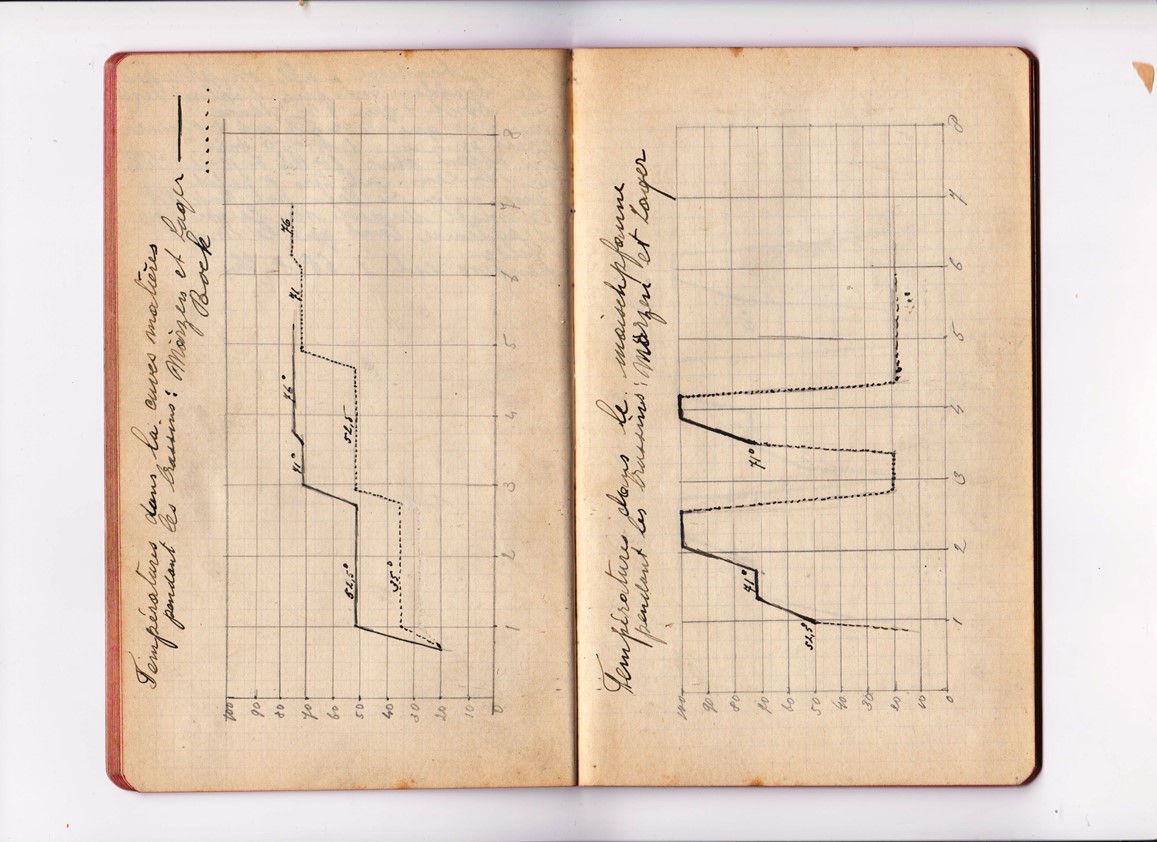 Températures dans la cuves matières
pendant les brassins: Märzen et Lager
Bock
100
90
80
70
60
50
40
30
20
10
0
1
2
3
4
5
6
7
8
52,5°
71°
76°
35°
52,5
71
76
Températures dans le maischpfanne
pendant les brassins: Märzen et Lager
100
90
80
70
60
50
40
30
20
10
0
1
2
3
4
5
6
7
8
52,5°
71°
71°